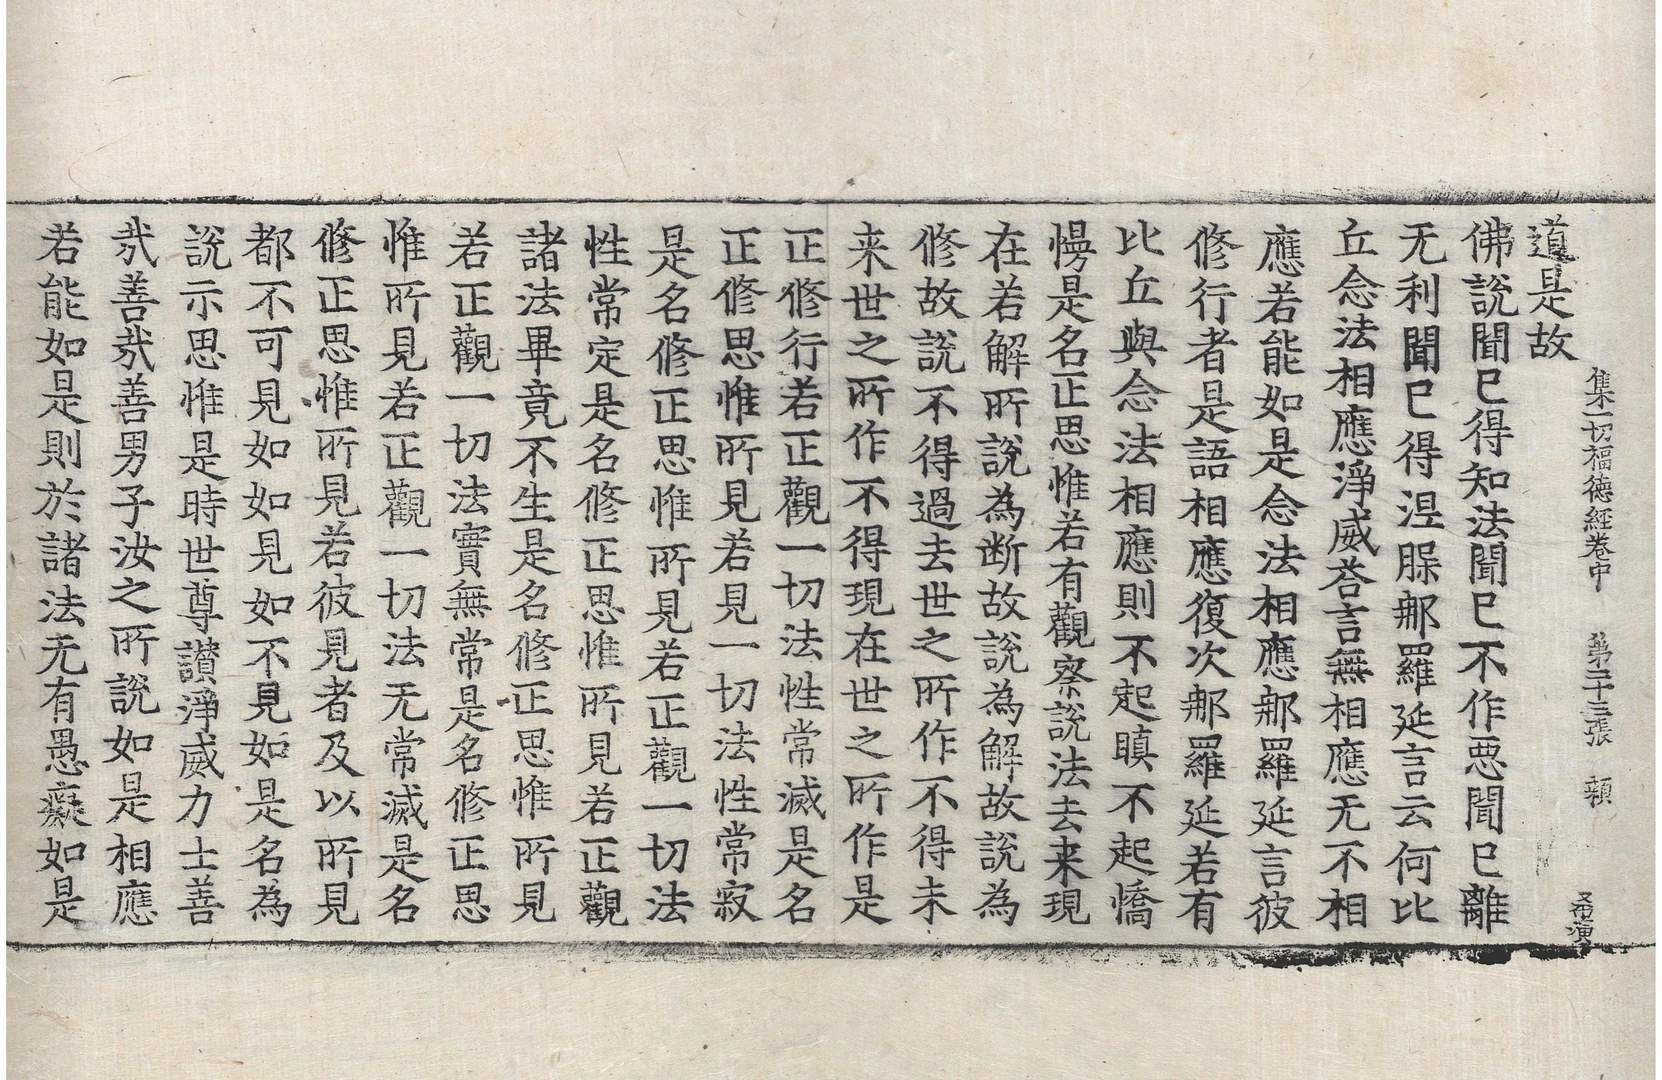 集一切福德經卷中　第二十三張　頼
希演
道是故
佛說聞已得知法聞已不作惡聞已離
无利聞已得涅脲那羅延言云何比
丘念法相應淨威荅言無相應无不相
應若能如是念法相應那羅延言彼
修行者是語相應復次那羅延若有
比丘與念法相應則不起瞋不起憍
慢是名正思惟若有觀察說法去来現
在若解所說為断故說為解故說為
修故說不得過去世之所作不得未
来世之所作不得現在世之所作是
正修行若正觀一切法性常滅是名
正修思惟所見若見一切法性常寂
是名修正思惟所見若正觀一切法
性常定是名修正思惟所見若正觀
諸法畢竟不生是名修正思惟所見
若正觀一切法實無常是名修正思
惟所見若正觀一切法无常滅是名
修正思惟所見若彼見者及以所見
都不可見如如見如不見如是名為
說示思惟是時世尊讃淨威力士善
㢤善㢤善男子汝之所說如是相應
若能如是則於諸法无有愚癡如是